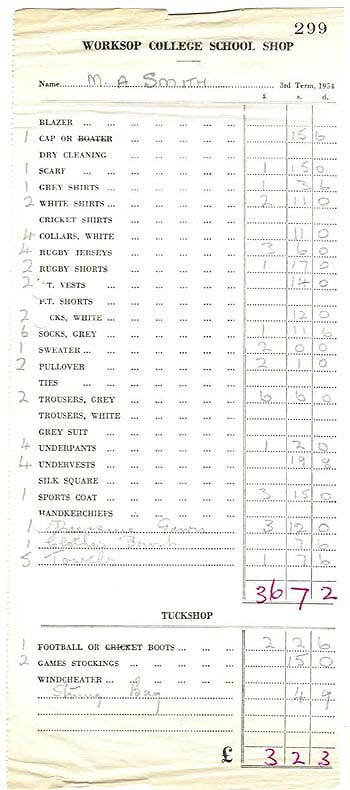 299
WORKSOP COLLEGE SCHOOL SHOP
Name M. A SMITH 3rd Term, 1954
£ s. d.
BLAZER
1 CAP OR BOATER 15 6
DRY CLEANING
1 SCARF 1 15 0
1 GREY SHIRTS 1 3 6
2 WHITE SHIRTS 2 11 0
CRICKET SHIRTS
4 COLLARS, WHITE 11 0
4 RUGBY JERSEYS 3 6 0
2 RUGBY SHORTS 1 17 0
2 P.T. VESTS 14 0
P.T. SHORTS
2 CKS, WHITE 12 0
6 SOCKS, GREY 1 11 6
1 SWEATER 2 0 0
2 PULLOVER 2 1 0
TIES
2 TROUSERS, GREY 6 6 0
TROUSERS, WHITE
GREY SUIT
4 UNDERPANTS 1 2 0
4 UNDERVESTS 19 8
SILK SQUARE
1 SPORTS COAT 3 15 0
HANDKERCHIEFS
1 Dressing Gown 3 12 0
1 Clothes Brush 6
5 Towels 1 7 6
36 7 2
TUCKSHOP
1 FOOTBALL OR CRICKET BOOTS 2 2 6
2 GAMES STOCKINGS 15 0
WINDCHEATER
String Bag 4 9
£ 3 2 3